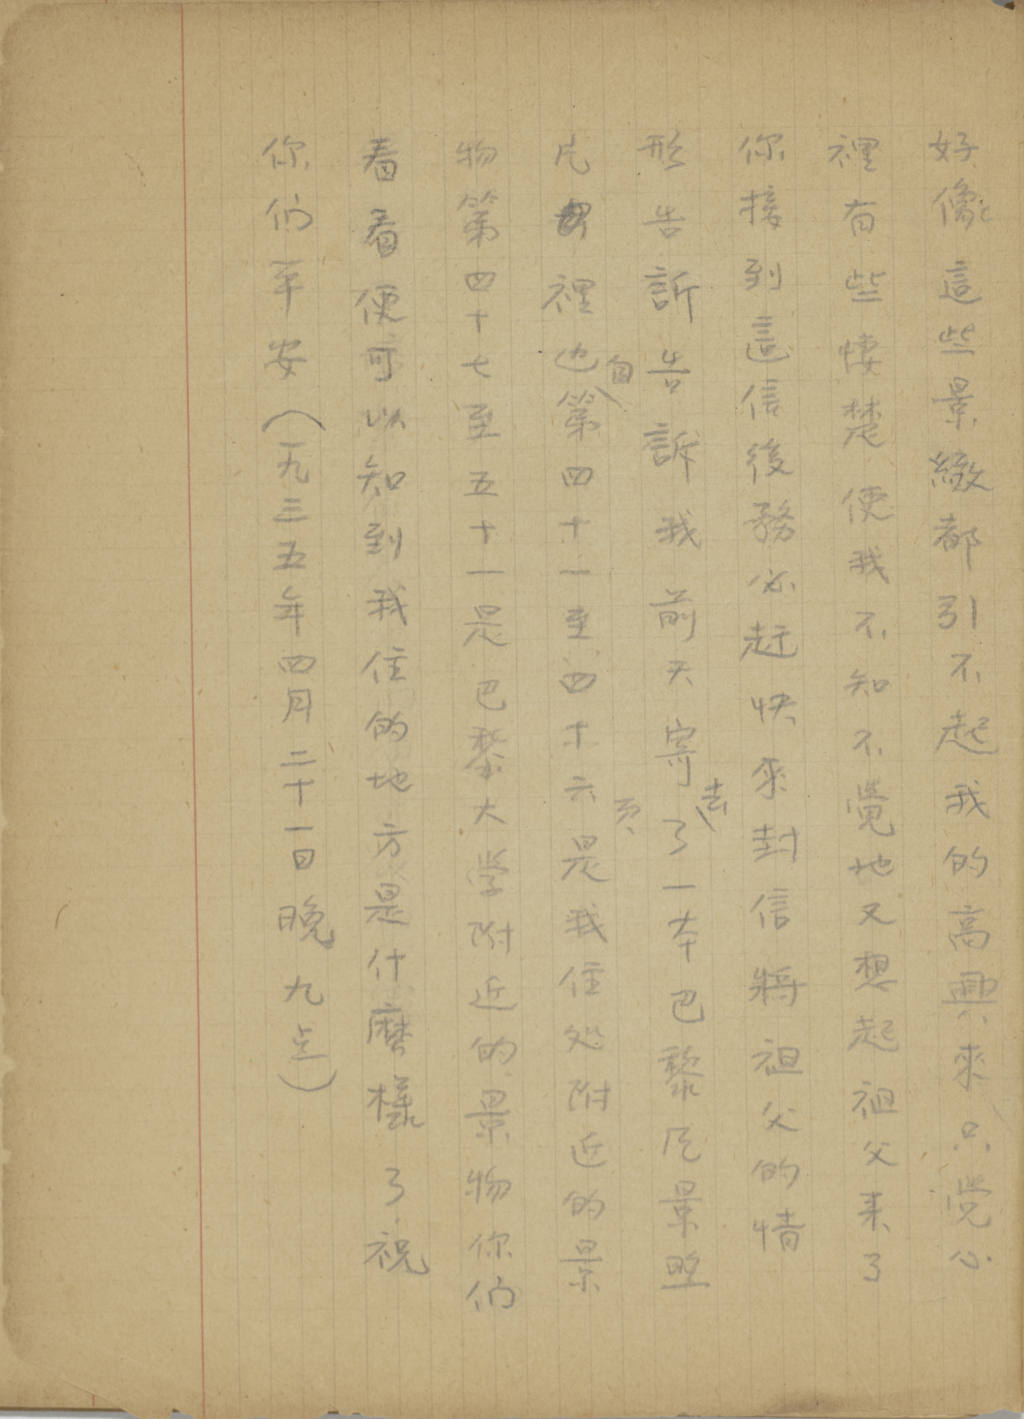 好像這些景緻都引不起我的高興來只覺心
裡有些悽楚使我不知不覺地又想起祖父来了
你接到這信後務必赶快來封信將祖父的情
形告訴告訴我前天寄去了一本巴黎风景照
片裡也自第四十一至四十六頁是我住处附近的景
物第四十七至五十一是巴黎大学附近的景物你们
看看便可以知到我住的地方是什麼樣了祝
你们平安(一九三五年四月二十一日晚九点)